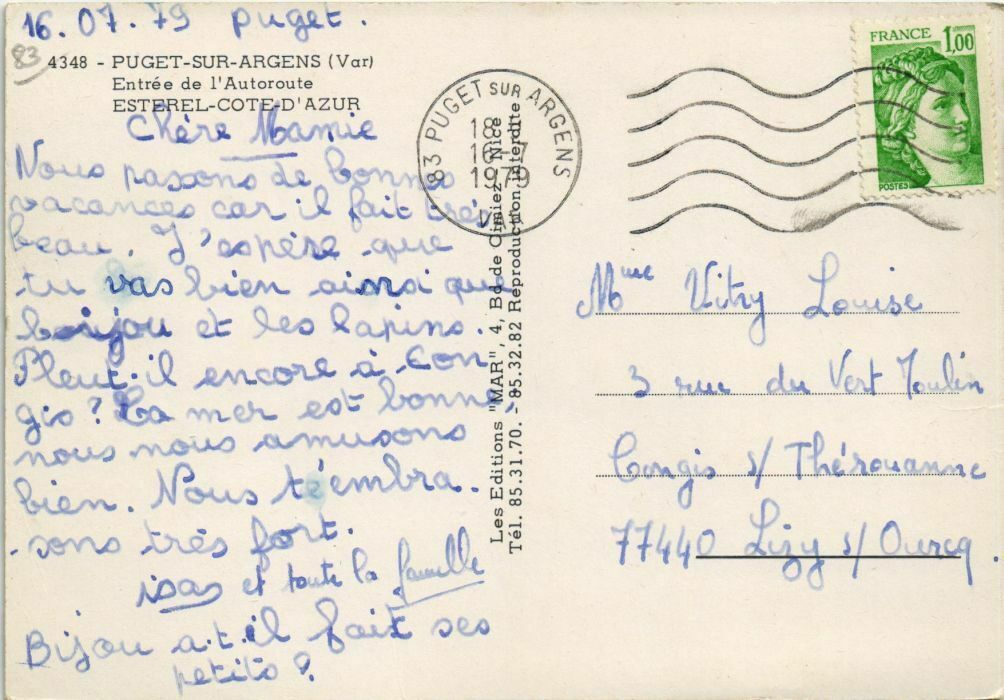 16.07.79 Puget.
83
4348 - PUGET-SUR-ARGENS (Var)
Entrée de l'Autoroute
ESTEREL-COTE-D'AZUR
Chère Mamie
Nous passons de bonnes
vacances car il fait très
beau. J'espère que
tu vas bien ainsi que
bijou et les lapins.
Pleut-il encore à Con
gis? La mer est bonne,
nous nous amusons
bien. Nous t'embra.
.sons très fort.
isas et toute la famille
Bijou a.t.il fait ses
petits?
Les Editions "MAR", 4, Bd de Cimiez - Nice
Tél. 85.31.70. - 85.32.82 Reproduction interdite
83 PUGET SUR ARGENS
18 H
16-7
1979
VAR
FRANCE 1,00
POSTES
Mme Vitry Louise
3 rue du Vert Moulin
Congis s/ Thérouanne
77440 Lizy s/ Ourcq.